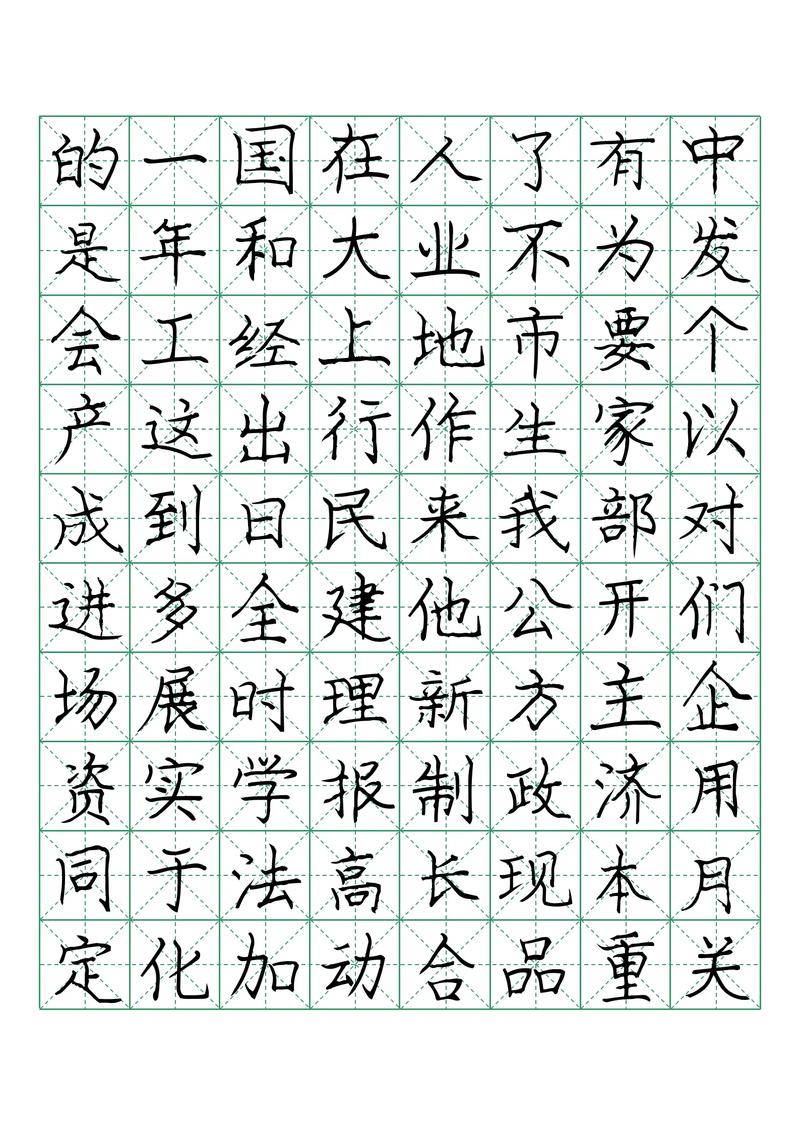 的一国在人了有中
是年和大业不为发
会工经上地市要个
产这出行作生家以
成到日民来我部对
进多全建他公开们
场展时理新方主企
资实学报制政济用
同于法高长现本月
定化加动合品重关